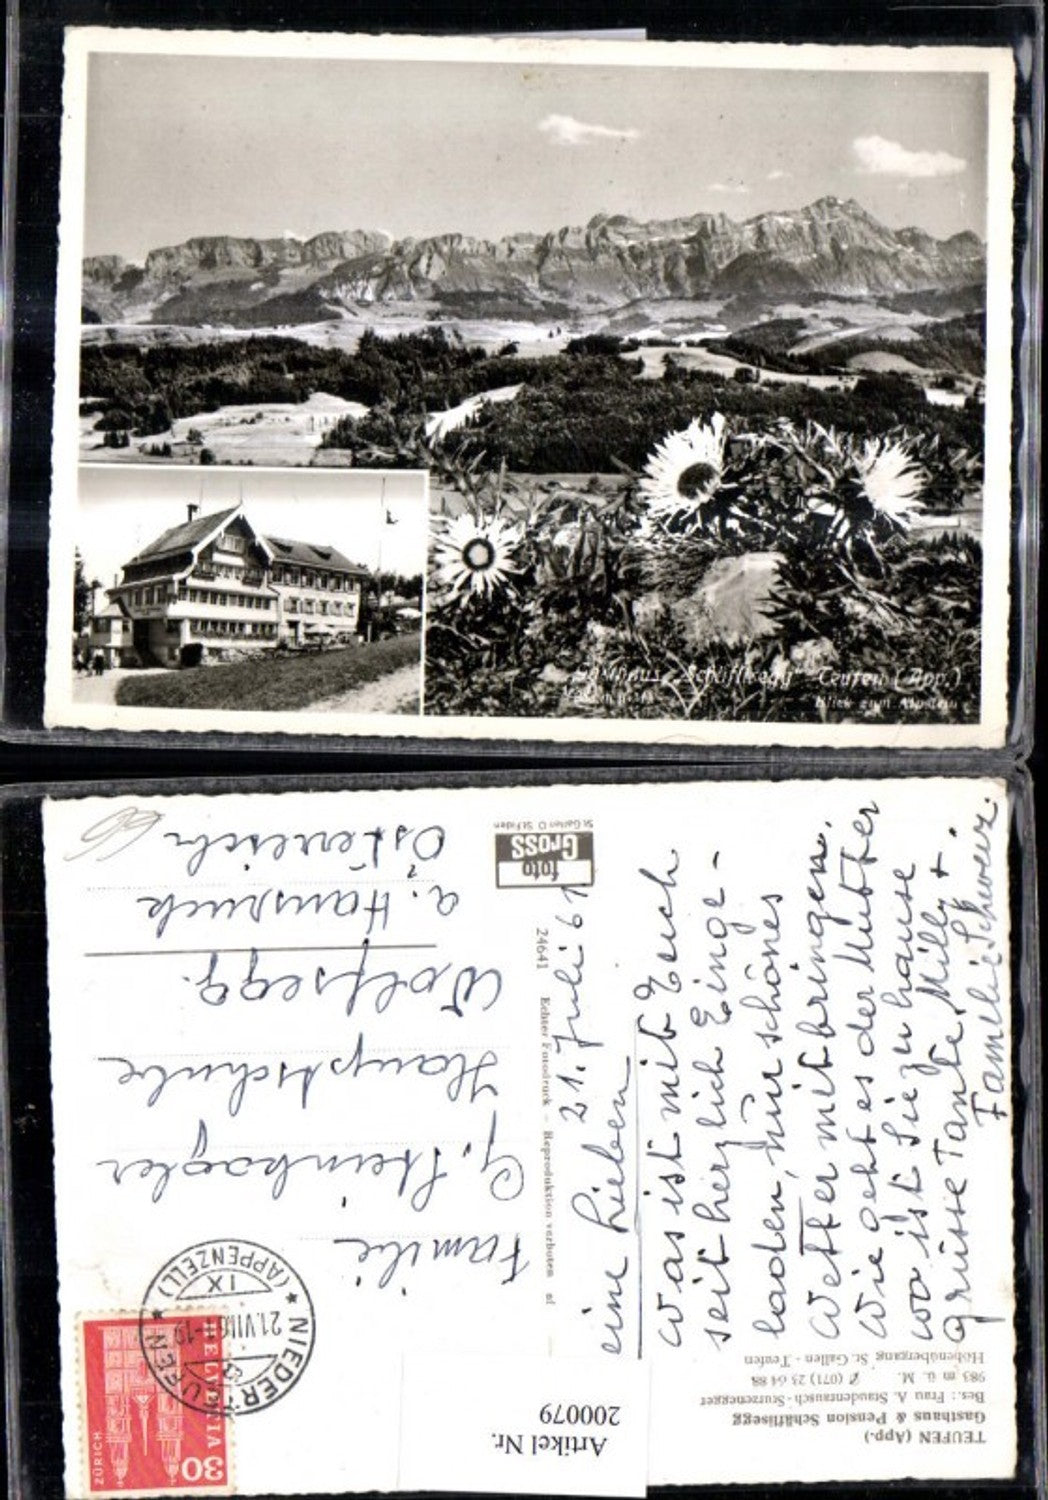 Gasthaus "Schäflisegg" Teufen (App.)
Blick zum Alpstein
TEUFEN (App.)
Gasthaus & Pension Schäflisegg
Bes.: Frau A. Staudenrausch-Sturzenegger
983 m ü. M. (071) 23 64 88
Höhenübergang St. Gallen - Teufen
21. Juli 61
eine Lieben
Was ist mit Euch
seit herzlich Einge-
laden, nur schönes
Wetter mitbringen.
Wie geht es der Mutter
wo ist Sie zu hause
Grüsse Tante Milly +
Familie Schweiz.
24641 Echter Fotodruck - Reproduktion verboten
foto
Gross
St. Gallen O St. Fiden
NIEDERTEUFEN
(APPENZELL)
21.VII.61-19
IX
HELVETIA
30
ZÜRICH
Familie
G. Steinkogler
Hauptschule
Wolfsegg.
a. Hausruck
Österreich
Artikel Nr.
200079